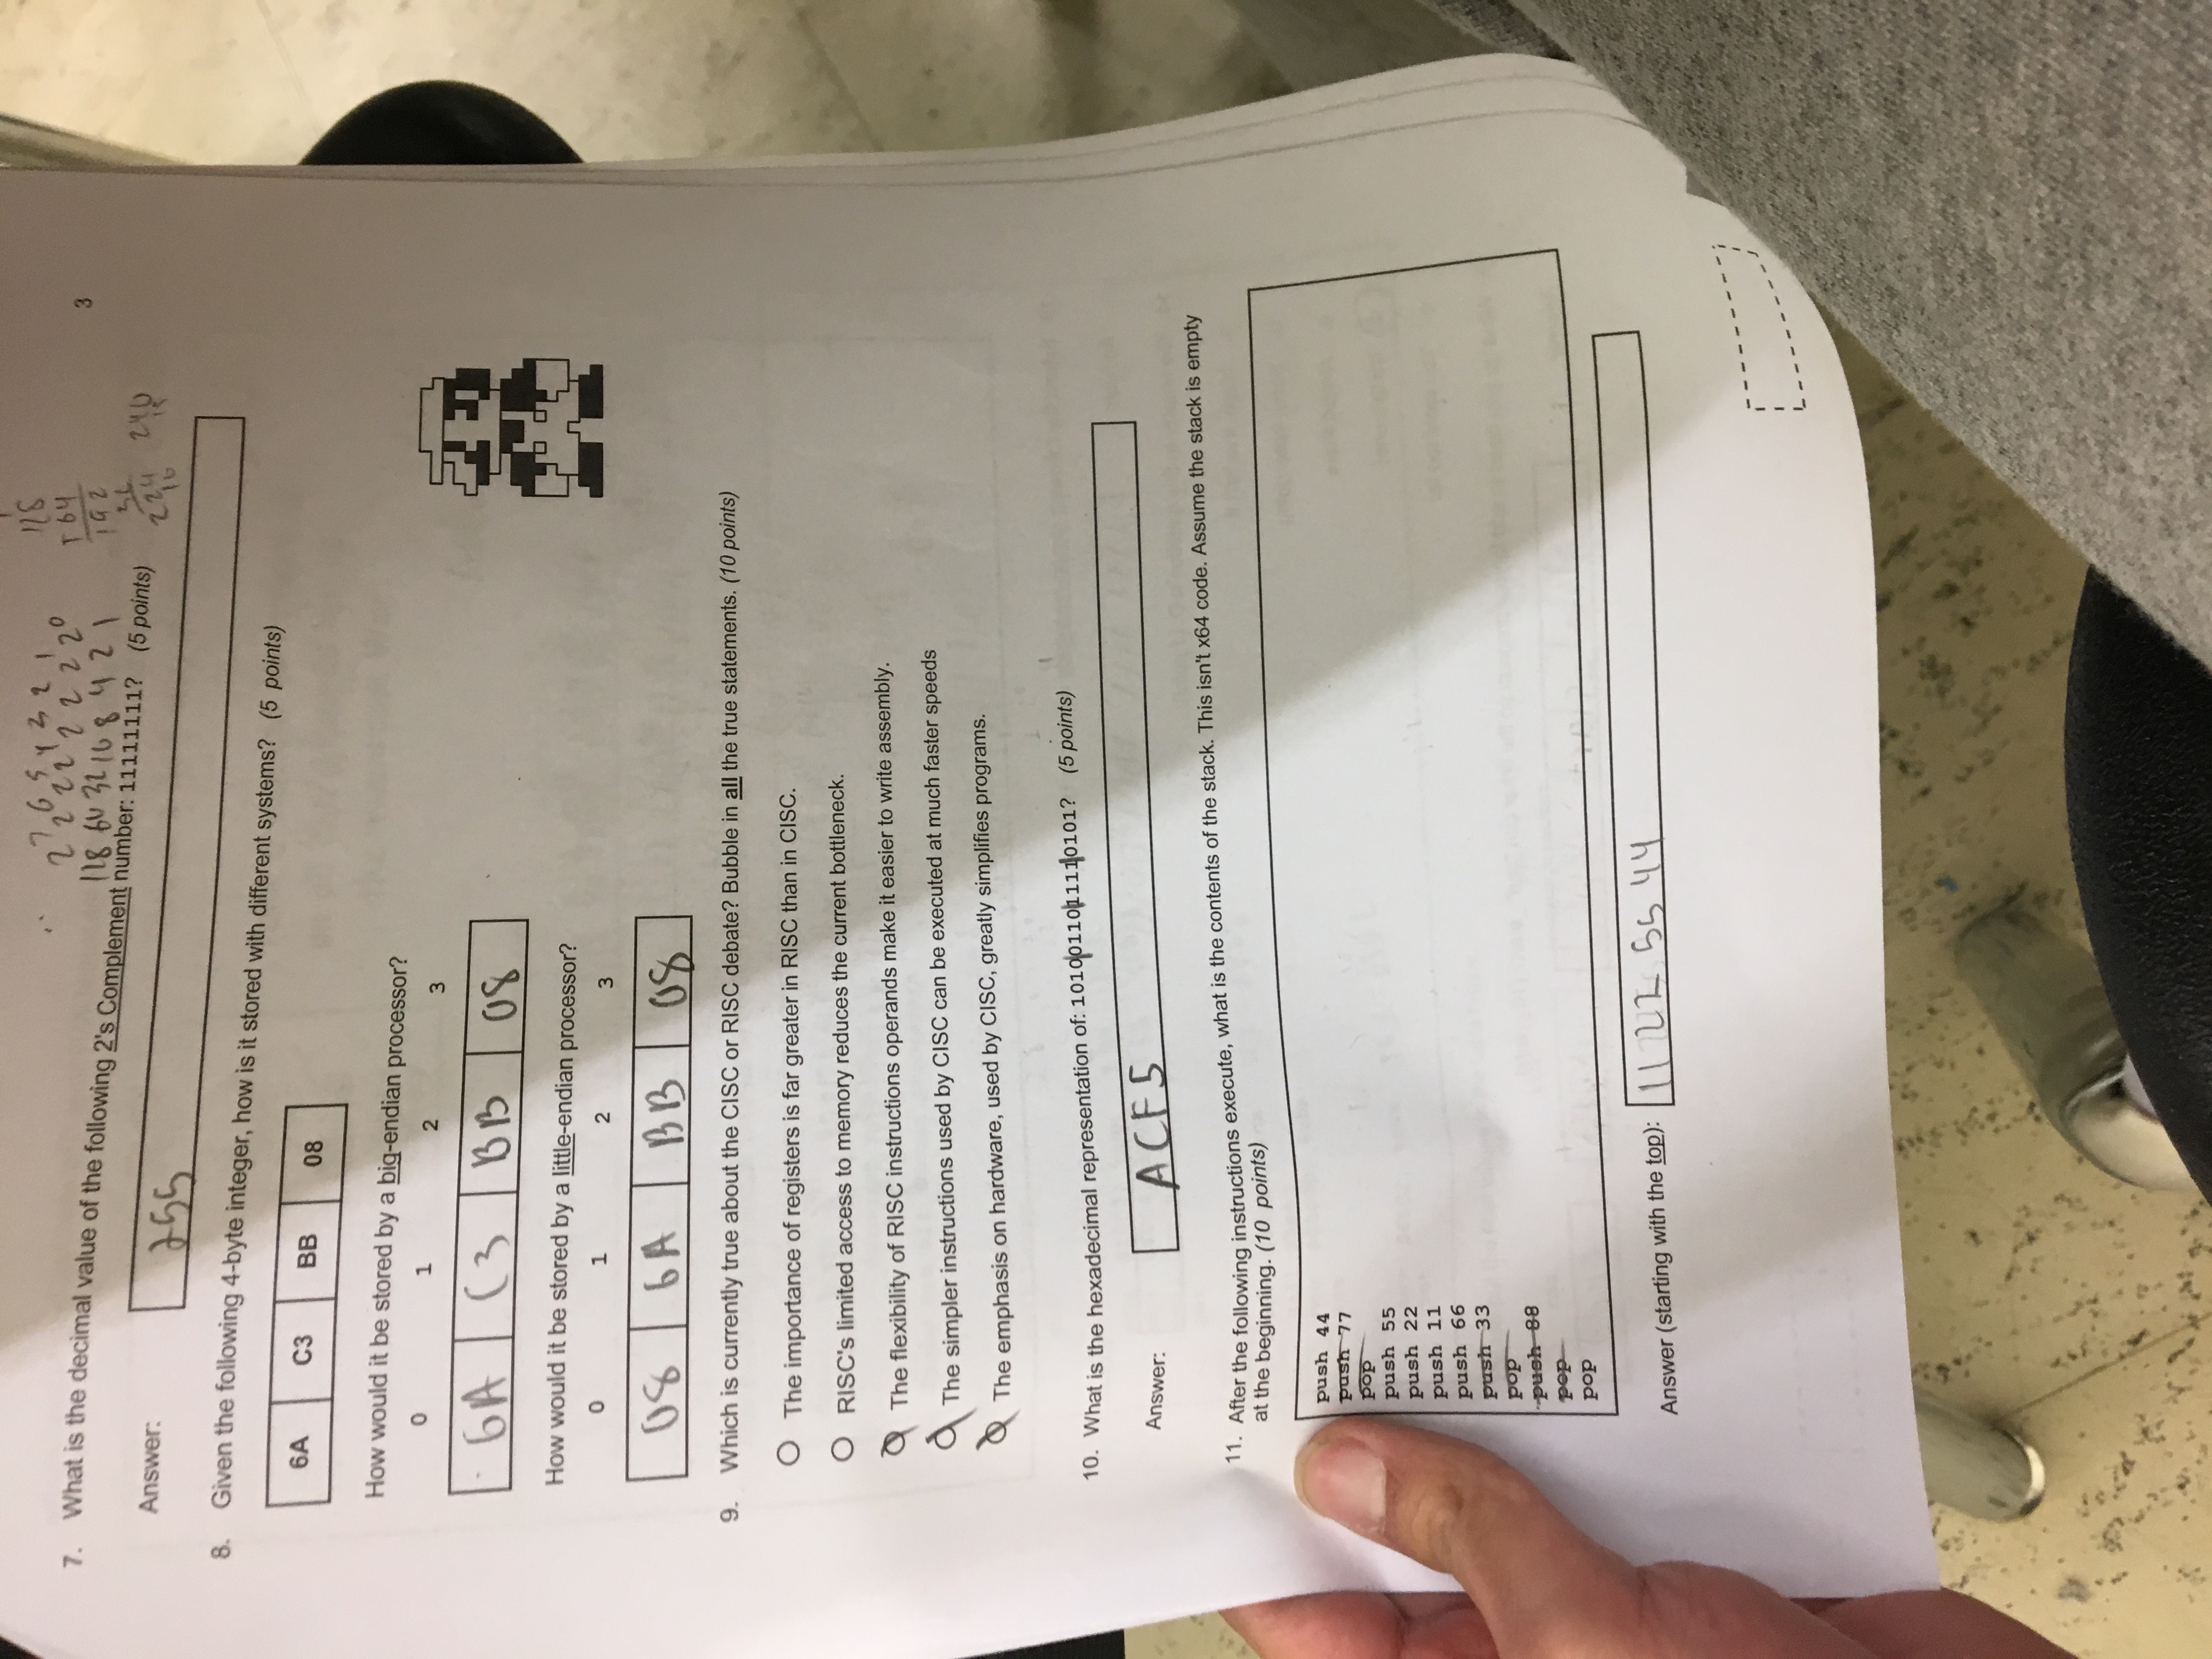 2⁷ 2⁶ 2⁵ 2⁴ 2³ 2² 2¹ 2⁰
118 64 32 16 8 4 2 1
118
+64
192
224
16
240
3
7. What is the decimal value of the following 2's Complement number: 11111111? (5 points)
Answer: 255
8. Given the following 4-byte integer, how is it stored with different systems? (5 points)
6A C3 BB 08
How would it be stored by a big-endian processor?
0 1 2 3
6A C3 BB 08
How would it be stored by a little-endian processor?
0 1 2 3
08 6A BB 08
9. Which is currently true about the CISC or RISC debate? Bubble in all the true statements. (10 points)
The importance of registers is far greater in RISC than in CISC.
RISC's limited access to memory reduces the current bottleneck.
The flexibility of RISC instructions operands make it easier to write assembly.
The simpler instructions used by CISC can be executed at much faster speeds
The emphasis on hardware, used by CISC, greatly simplifies programs.
10. What is the hexadecimal representation of: 1010011011110101? (5 points)
Answer: ACF5
11. After the following instructions execute, what is the contents of the stack. This isn't x64 code. Assume the stack is empty
at the beginning. (10 points)
push 44
push 77
pop
push 55
push 22
push 11
push 66
push 33
pop
push 88
pop
pop
Answer (starting with the top): 11 22 55 44